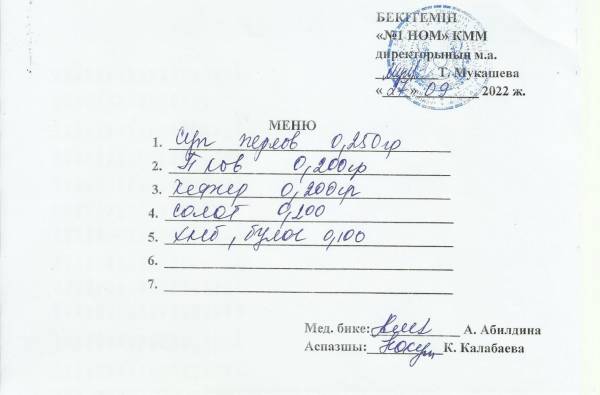 БЕКІТЕМІН
«№1 НОМ» КММ
директорының м.а.
Т. Мукашева
« 27 » 09 2022 ж.
МЕНЮ
1. Суп перлов 0,250гр
2. Плов 0,200гр
3. Кефир 0,200гр
4. солот 0,200
5. хлеб, булоч 0,100
6.
7.
Мед. бике: А. Абилдина
Аспазшы: К. Калабаева